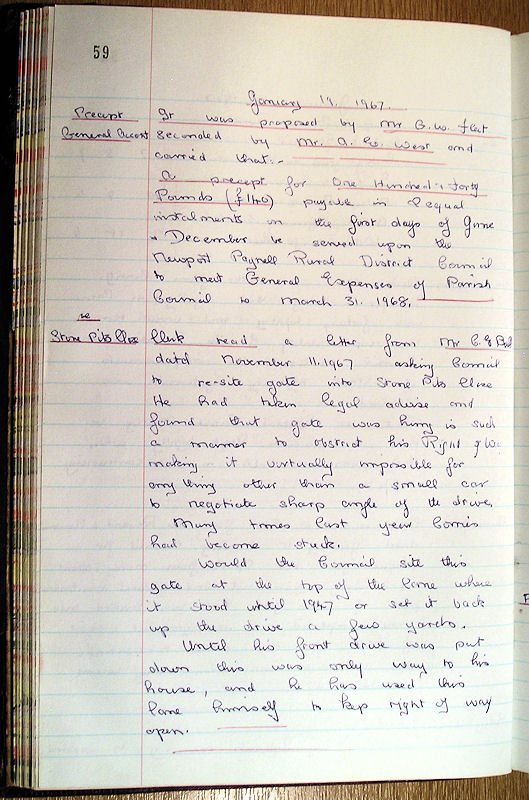 59
January 19. 1967.
Precept It was proposed by Mr G. W. Fleet
General Account seconded by Mr. A. W. West and
carried that:-
A precept for One Hundred & Forty
Pounds (£140) payable in 2 equal
instalments on the first days of June
& December be served upon the
Newport Pagnell Rural District Council
to meet General Expenses of Parish
Council to March 31. 1968.
re
Stone Pits Close Clerk read a letter from Mr C. G.
dated November 11. 1967 asking Council
to re-site gate into Stone Pits Close
He had taken legal advise and
found that gate was hung is such
a manner to obstrict his Right of Way
making it virtually impossible for
any thing other than a small car
to negotiate sharp angle of the drive.
Many times last year lorries
had become stuck.
Would the Council site this
gate at the top of the lane where
it stood until 1947 or set it back
up the drive a few yards.
Until his front drive was put
down this was only way to his
house, and he has used this
lane himself to keep right of way
open.